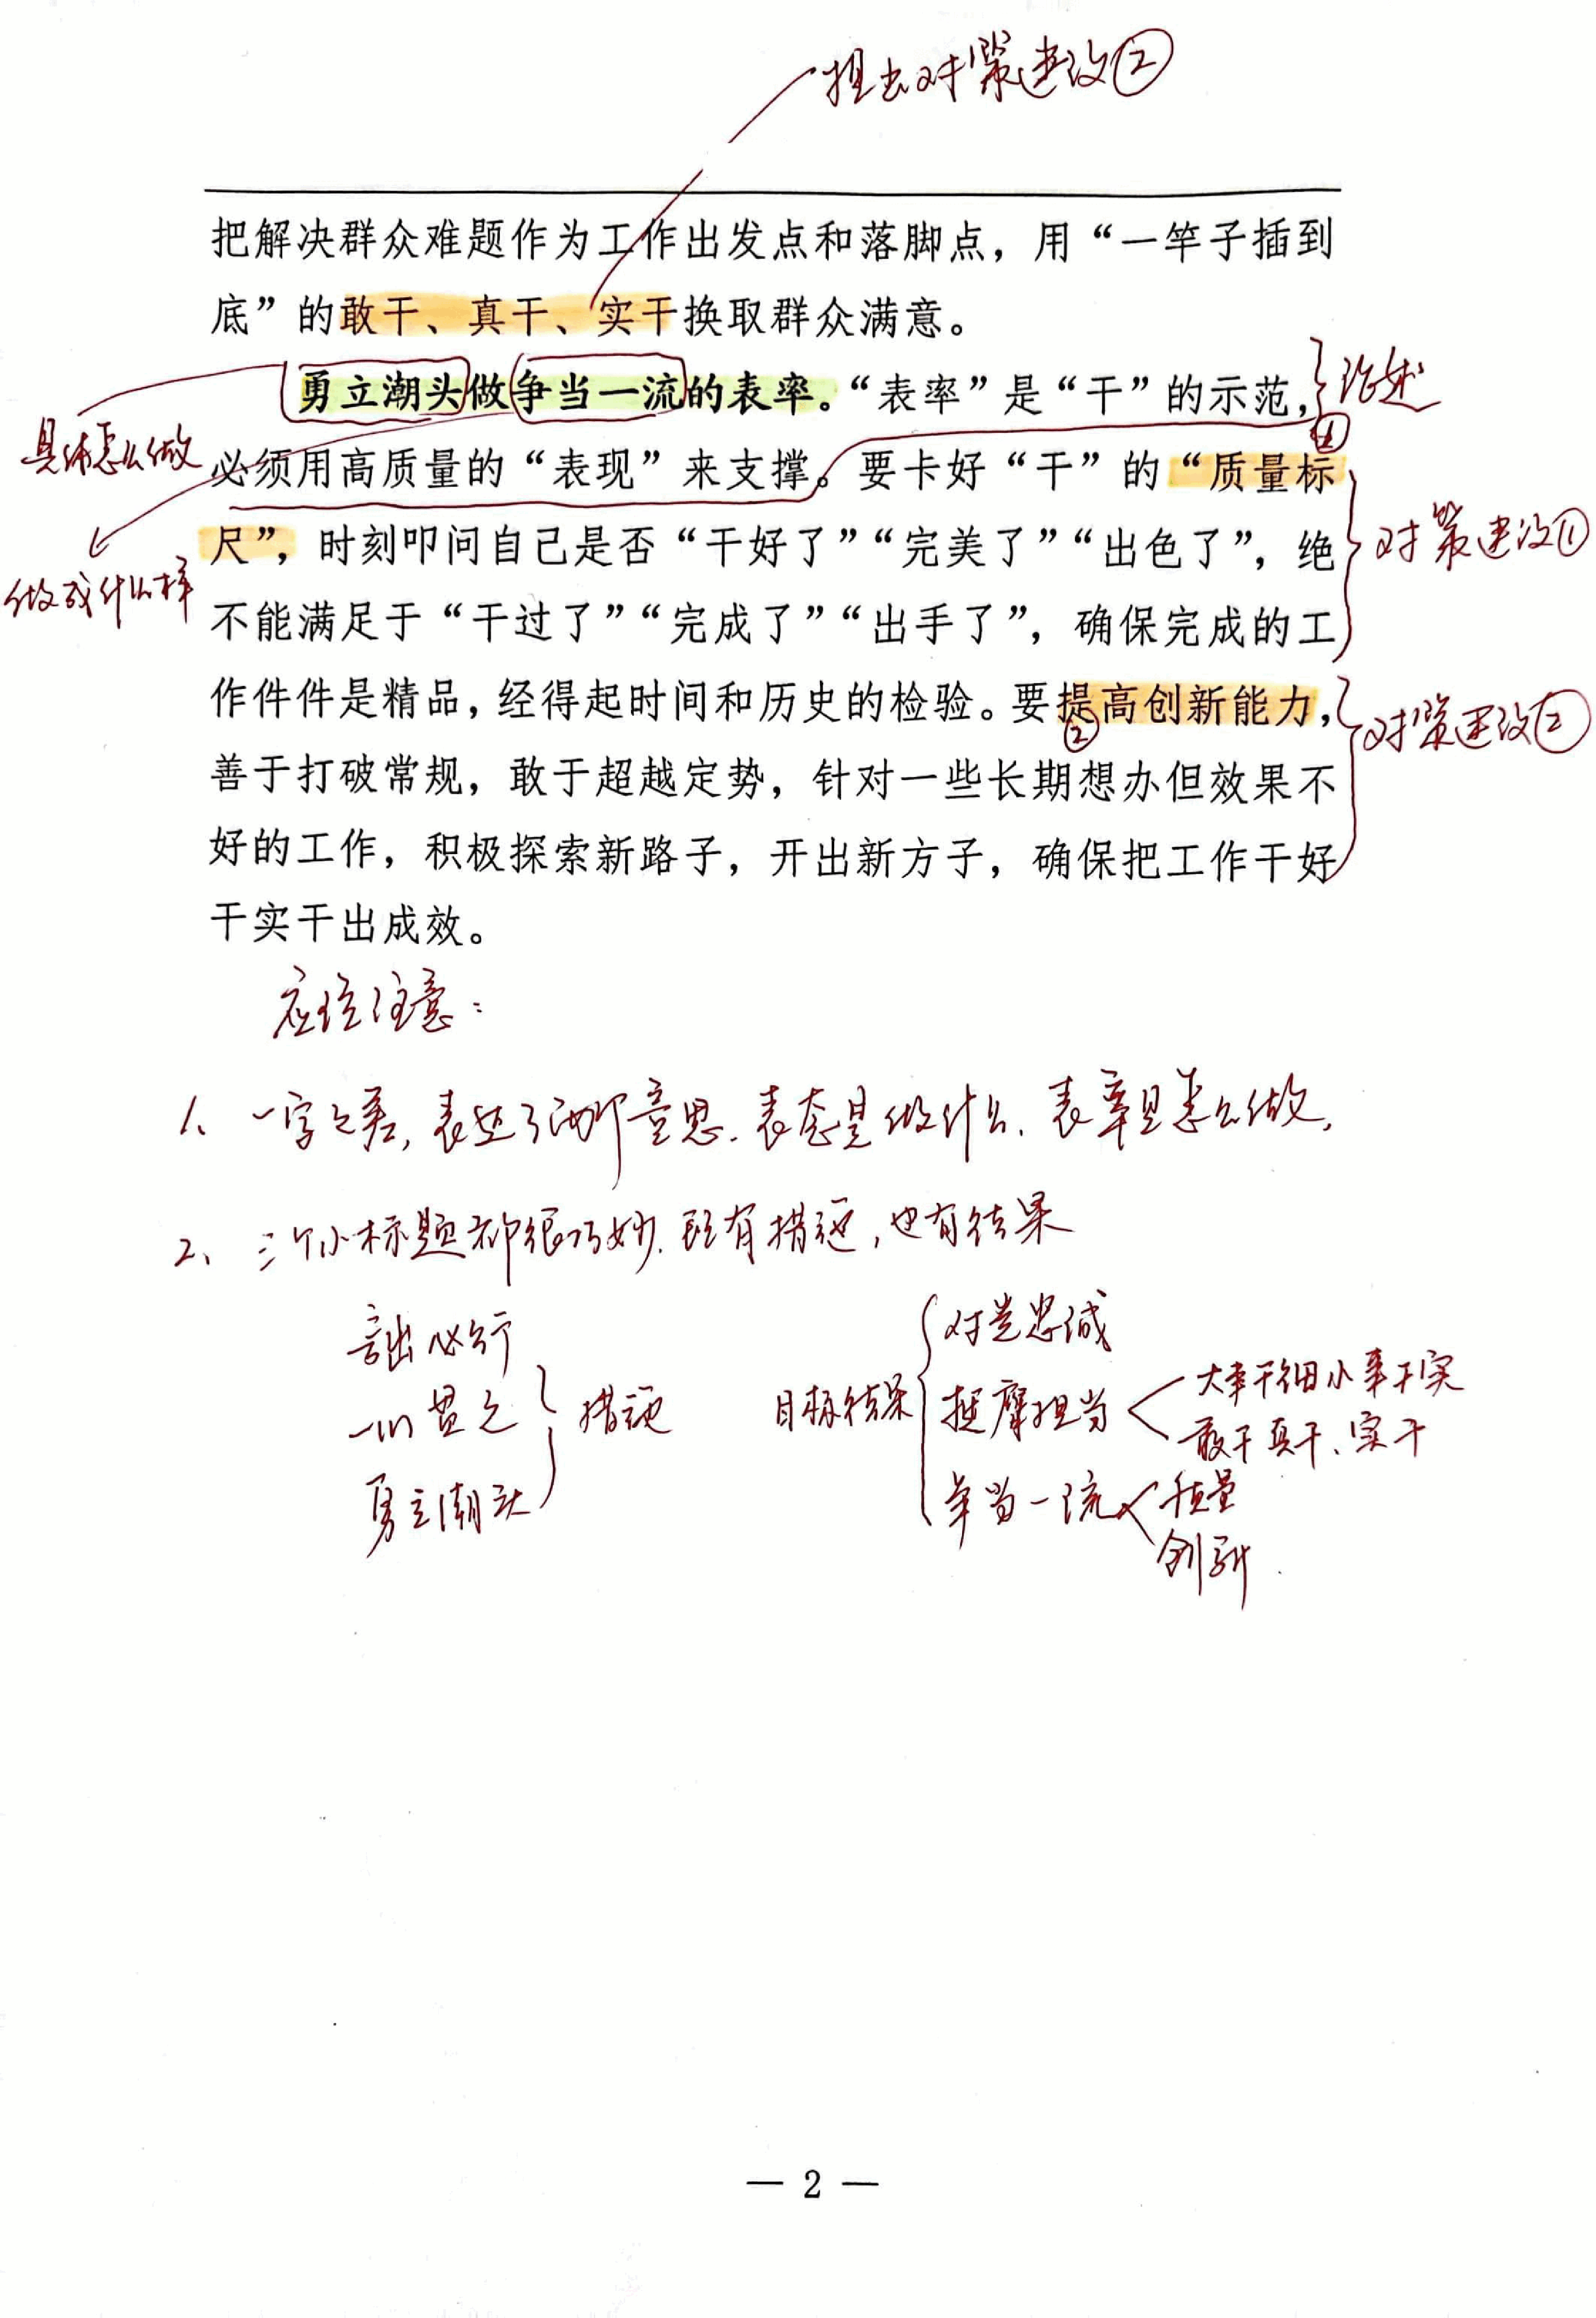 提出对策建议②
把解决群众难题作为工作出发点和落脚点，用“一竿子插到
底”的敢干、真干、实干换取群众满意。
勇立潮头做争当一流的表率。“表率”是“干”的示范，
论述
具体怎么做
必须用高质量的“表现”来支撑。要卡好“干”的“质量标
①
尺”，时刻叩问自己是否“干好了”“完美了”“出色了”，绝
对策建议①
做成什么样
不能满足于“干过了”“完成了”“出手了”，确保完成的工
作件件是精品，经得起时间和历史的检验。要提高创新能力，
②
对策建议②
善于打破常规，敢于超越定势，针对一些长期想办但效果不
好的工作，积极探索新路子，开出新方子，确保把工作干好
干实干出成效。
应该注意：
1、一字之差，表达了两个意思．表态是做什么．表率是怎么做．
2、三个小标题都很巧妙．既有措施，也有结果
言出必行
一以贯之
勇立潮头
措施
目标结果
对党忠诚
担当
大事干细小事干实
敢干真干、实干
争当一流
质量
创新．
— 2 —